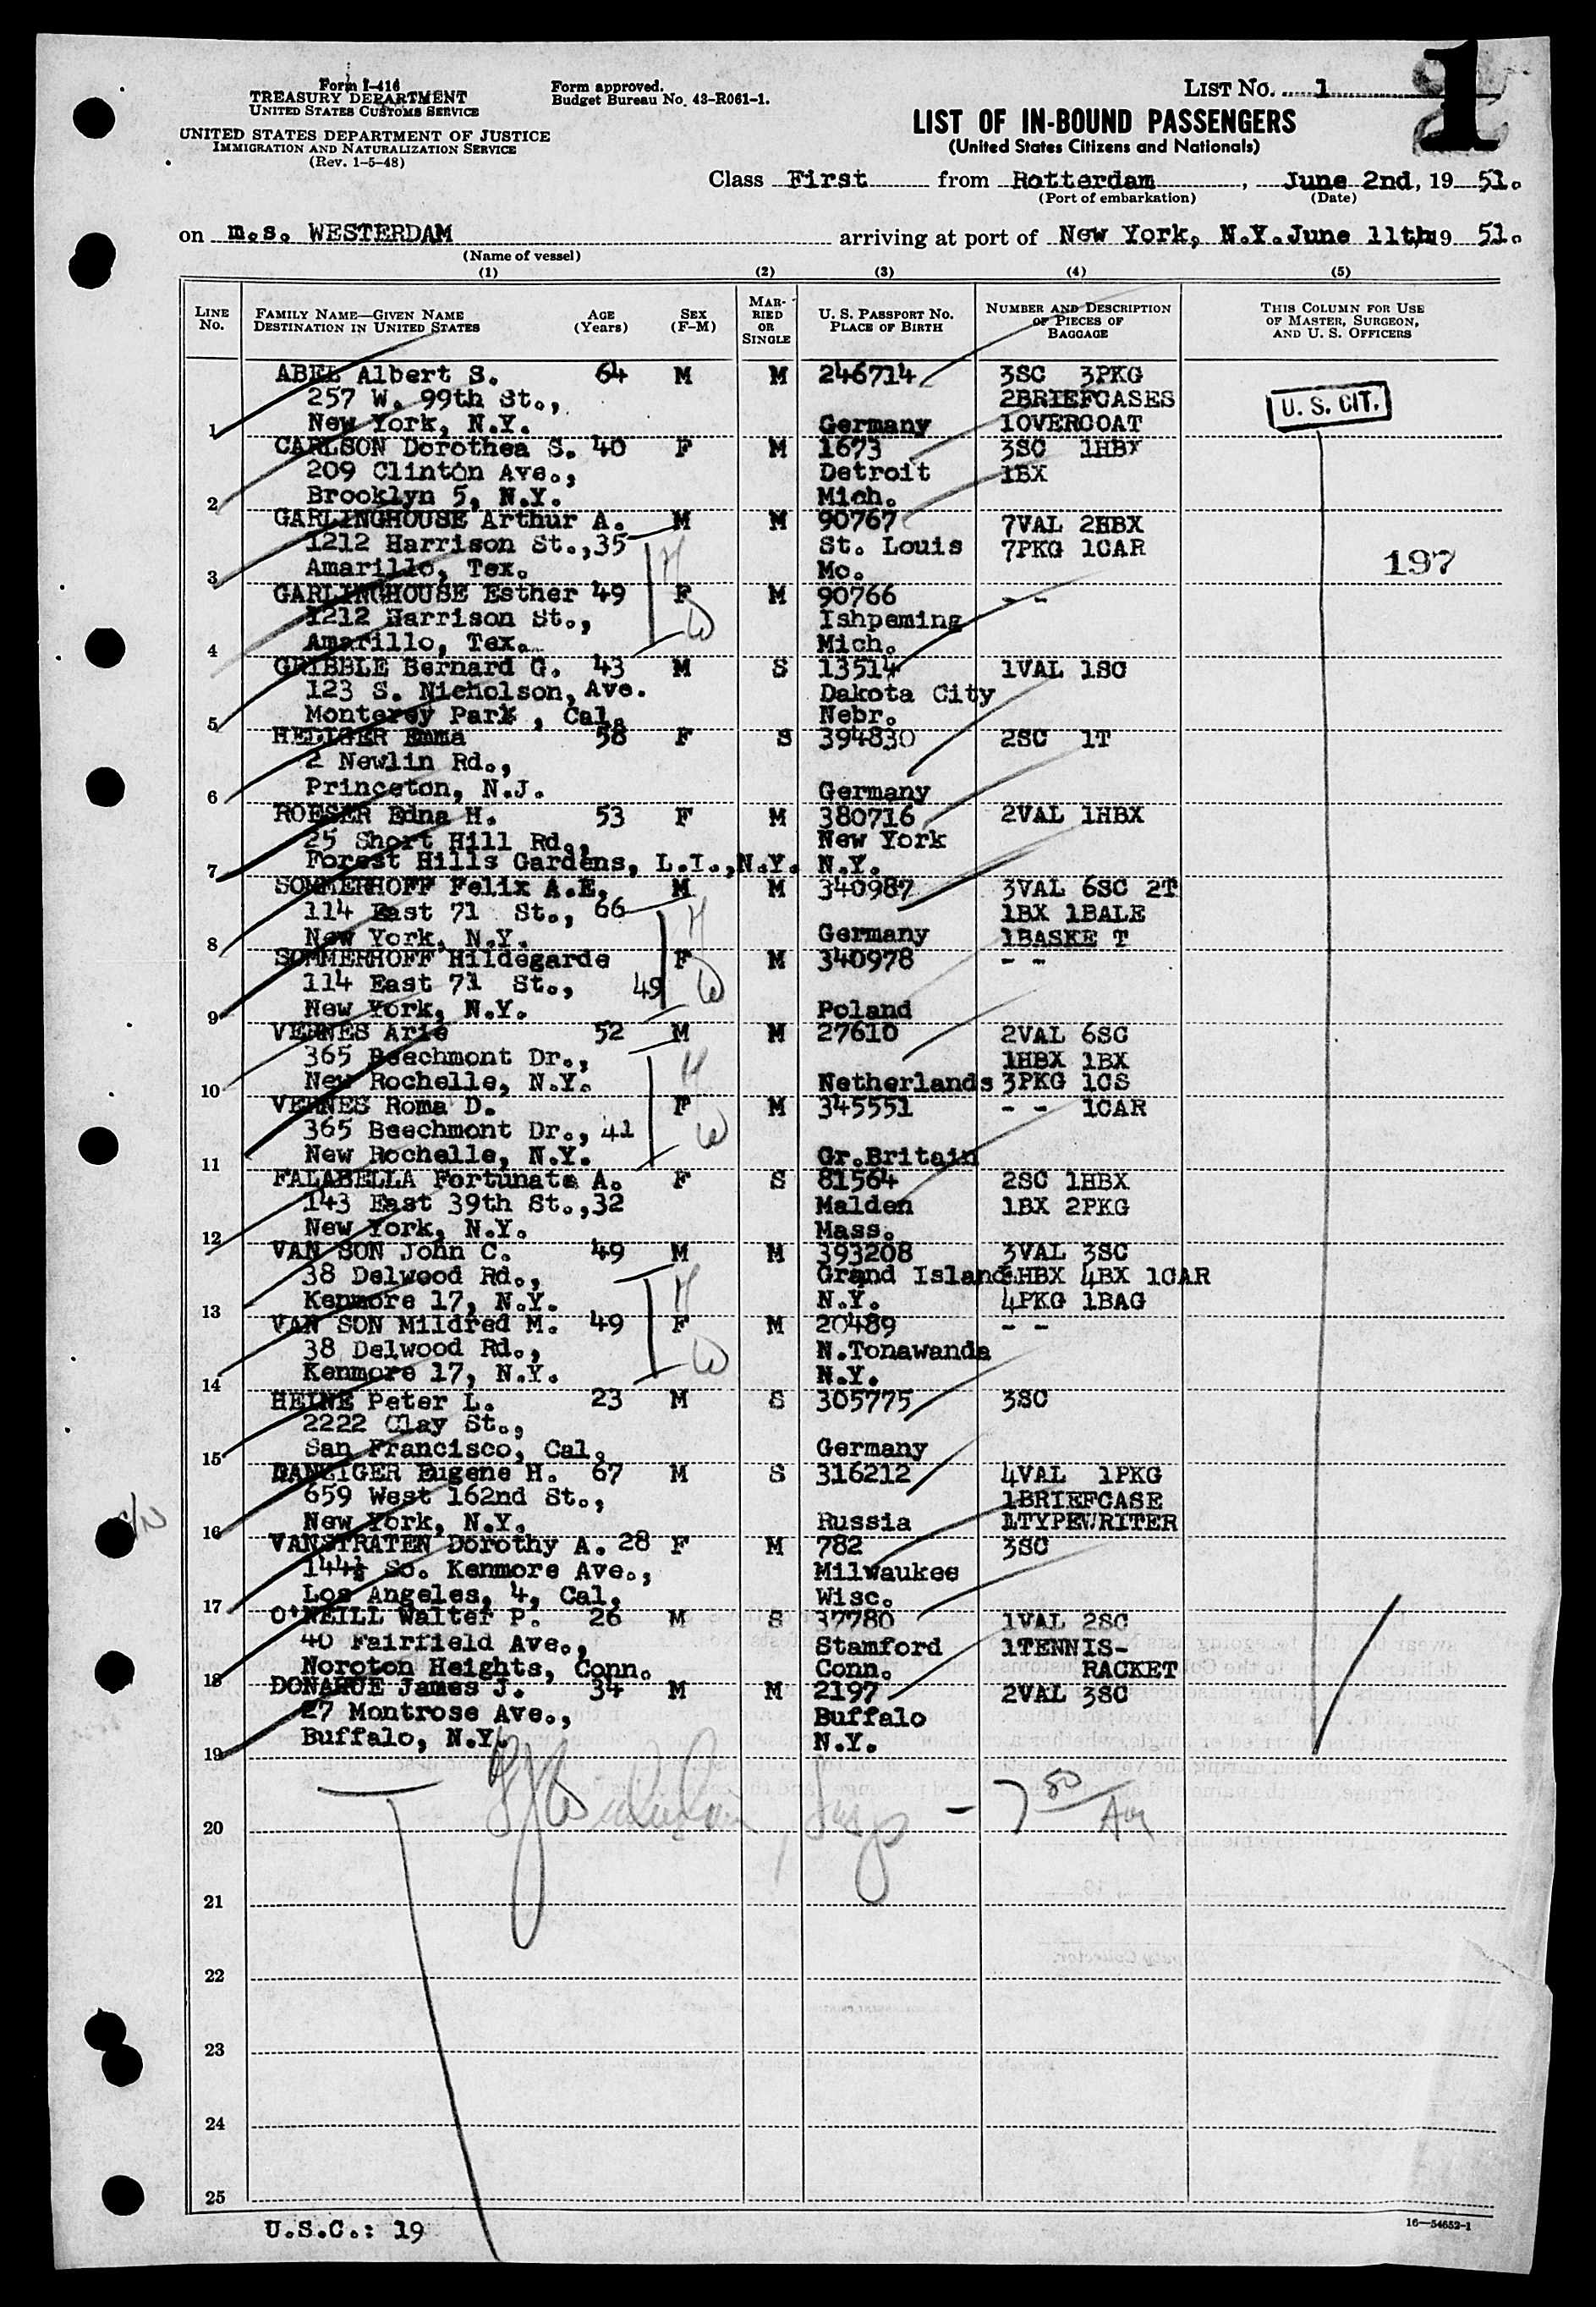 Form I-416
TREASURY DEPARTMENT
UNITED STATES CUSTOMS SERVICE
UNITED STATES DEPARTMENT OF JUSTICE
IMMIGRATION AND NATURALIZATION SERVICE
(Rev. 1-5-48)
Form approved.
Budget Bureau No. 43-R061-1.
LIST NO. 1
1
LIST OF IN-BOUND PASSENGERS
(United States Citizens and Nationals)
Class First from Rotterdam, June 2nd, 19 51.
(Port of embarkation) (Date)
on m.s. WESTERDAM arriving at port of New York, N.Y. June 11th, 19 51.
(Name of vessel)
(1) (2) (3) (4) (5)
LINE No. FAMILY NAME—GIVEN NAME DESTINATION IN UNITED STATES AGE (Years) SEX (F-M) MARRIED OR SINGLE U. S. PASSPORT NO. PLACE OF BIRTH NUMBER AND DESCRIPTION OF PIECES OF BAGGAGE THIS COLUMN FOR USE OF MASTER, SURGEON, AND U. S. OFFICERS
ABEL Albert S. 64 M M 246714 3SC 3PKG
257 W. 99th St., 2BRIEFCASES U. S. CIT.
1 New York, N.Y. Germany 1OVERCOAT
CARLSON Dorothea S. 40 F M 1673 3SC 1HBX
209 Clinton Ave., Detroit 1BX
2 Brooklyn 5, N.Y. Mich.
GARLINGHOUSE Arthur A. M M 90767 7VAL 2HBX
1212 Harrison St., 35 St. Louis 7PKG 1CAR
3 Amarillo, Tex. H Mo. 197
GARLINGHOUSE Esther 49 F M 90766 - -
1212 Harrison St., W Ishpeming
4 Amarillo, Tex. Mich.
GRIBBLE Bernard G. 43 M S 13514 1VAL 1SC
123 S. Nicholson, Ave. Dakota City
5 Monterey Park, Cal. Nebr.
HEDIGER Emma 58 F S 394830 2SC 1T
2 Newlin Rd.,
6 Princeton, N.J. Germany
ROESER Edna H. 53 F M 380716 2VAL 1HBX
25 Short Hill Rd., New York
7 Forest Hills Gardens, L.I., N.Y. N.Y.
SOMMERHOFF Felix A.E. M M 340987 3VAL 6SC 2T
114 East 71 St., 66 H 1BX 1BALE
8 New York, N.Y. Germany 1BASKE T
SOMMERHOFF Hildegarde F M 340978 - -
114 East 71 St., 49 W
9 New York, N.Y. Poland
VERNES Arie 52 M M 27610 2VAL 6SC
365 Beechmont Dr., H 1HBX 1BX
10 New Rochelle, N.Y. Netherlands 3PKG 1CS
VERNES Roma D. F M 345551 - - 1CAR
365 Beechmont Dr., 41 W
11 New Rochelle, N.Y. Gr.Britain
FALABELLA Fortunata A. F S 81564 2SC 1HBX
143 East 39th St., 32 Malden 1BX 2PKG
12 New York, N.Y. Mass.
VAN SON John C. 49 M M 393208 3VAL 3SC
38 Delwood Rd., H Grand Island 1HBX 4BX 1CAR
13 Kenmore 17, N.Y. N.Y. 4PKG 1BAG
VAN SON Mildred M. 49 F M 20489 - -
38 Delwood Rd., W N.Tonawanda
14 Kenmore 17, N.Y. N.Y.
HEINE Peter L. 23 M S 305775 3SC
2222 Clay St.,
15 San Francisco, Cal. Germany
DANZIGER Eugene H. 67 M S 316212 4VAL 1PKG
659 West 162nd St., 1BRIEFCASE
16 New York, N.Y. Russia 1TYPEWRITER
VANSTRATEN Dorothy A. 28 F M 782 3SC
144½ So. Kenmore Ave., Milwaukee
17 Los Angeles, 4, Cal. Wisc.
O'NEILL Walter P. 26 M S 37780 1VAL 2SC
40 Fairfield Ave., Stamford 1TENNIS-
18 Noroton Heights, Conn. Conn. RACKET
DONAHUE James J. 34 M M 2197 2VAL 3SC
27 Montrose Ave., Buffalo
19 Buffalo, N.Y. N.Y.
20
21
22
23
24
25
U.S.C.: 19
16—54652-1